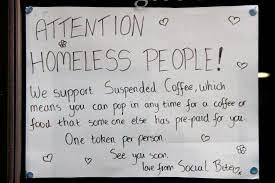 ATTENTION
HOMELESS PEOPLE!
We support Suspended Coffee, which
means you can pop in any time for a coffee or
food that some one else has pre-paid for you
One token per person.
See you soon
love from Social Bite